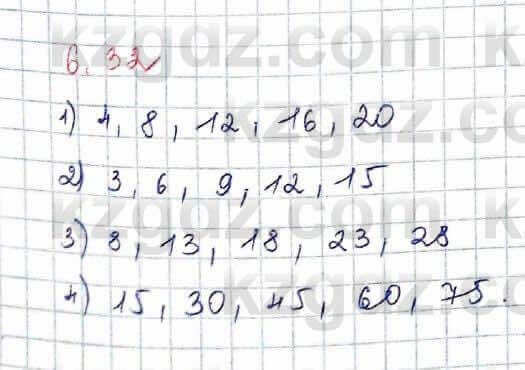 kzgdz.com
6.32
1) 4, 8, 12, 16, 20
2) 3, 6, 9, 12, 15
3) 8, 13, 18, 23, 28
4) 15, 30, 45, 60, 75.